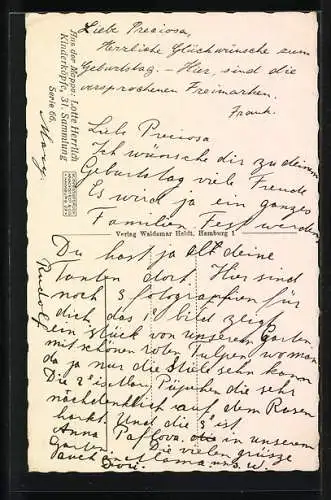 Aus der Mappe: Lotte Herrlich
Kinderköpfe, 31. Sammlung
Serie 66.
Liebe Preciosa,
Herrliche Glückwünsche zum
Geburtstag. - Hier, sind die
versprochenen Freimarken.
Frank.
Mary
Liebe Preciosa
Ich wünsche dir zu deinem
Geburtstag viele Freude
Es wird ja ein ganzes
Familien Fest werden
Verlag Waldemar Heldt, Hamburg 1
Du hast ja all deine
Tanten dort. Hier sind
noch 3 fotographien für
dich das 1e bild zeigt
ein stück von unserem Garten
mit schönen roten Tulpen wo man
da ja nur die Stiele sehn kann
Die 2e ist der Püpchen die sehr
nächdenklich auf dem Rasen
hockt. Und die 3e ist
Anna Pafflova in unserem
Garten. Die vielen grüsse
auch an Mama u.s.w.
Dori.
Rudolf